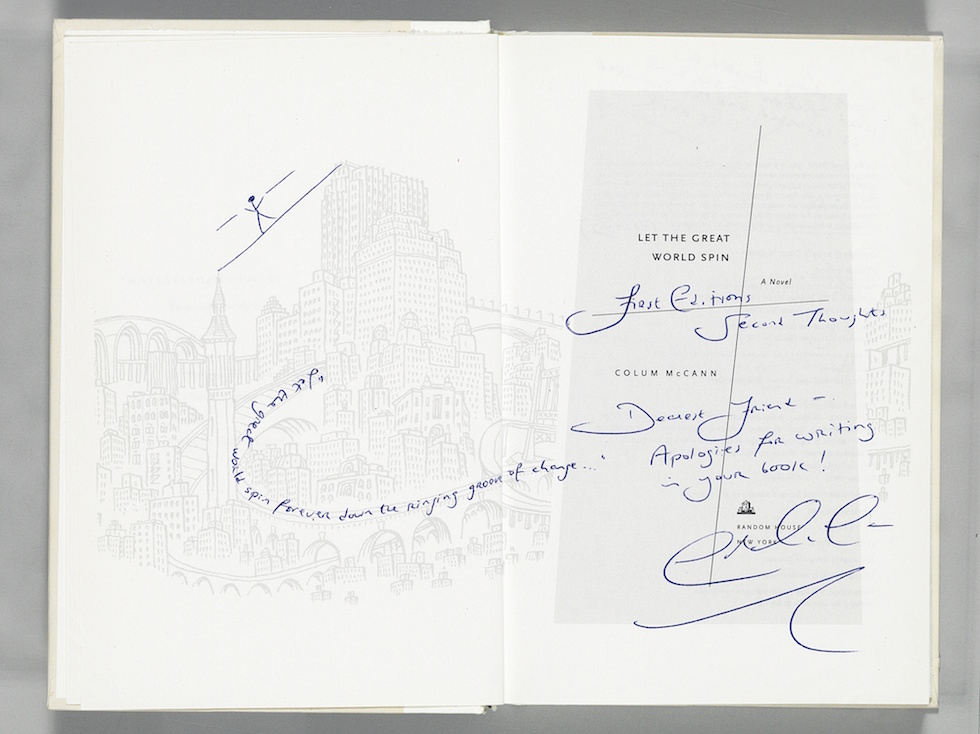 "Let the great world spin forever down the ringing groove of change..."
LET THE GREAT
WORLD SPIN
A Novel
First Editions
Second Thoughts
COLUM McCANN
Dearest Friend –
Apologies for writing
in your book!
RANDOM HOUSE
NEW YORK